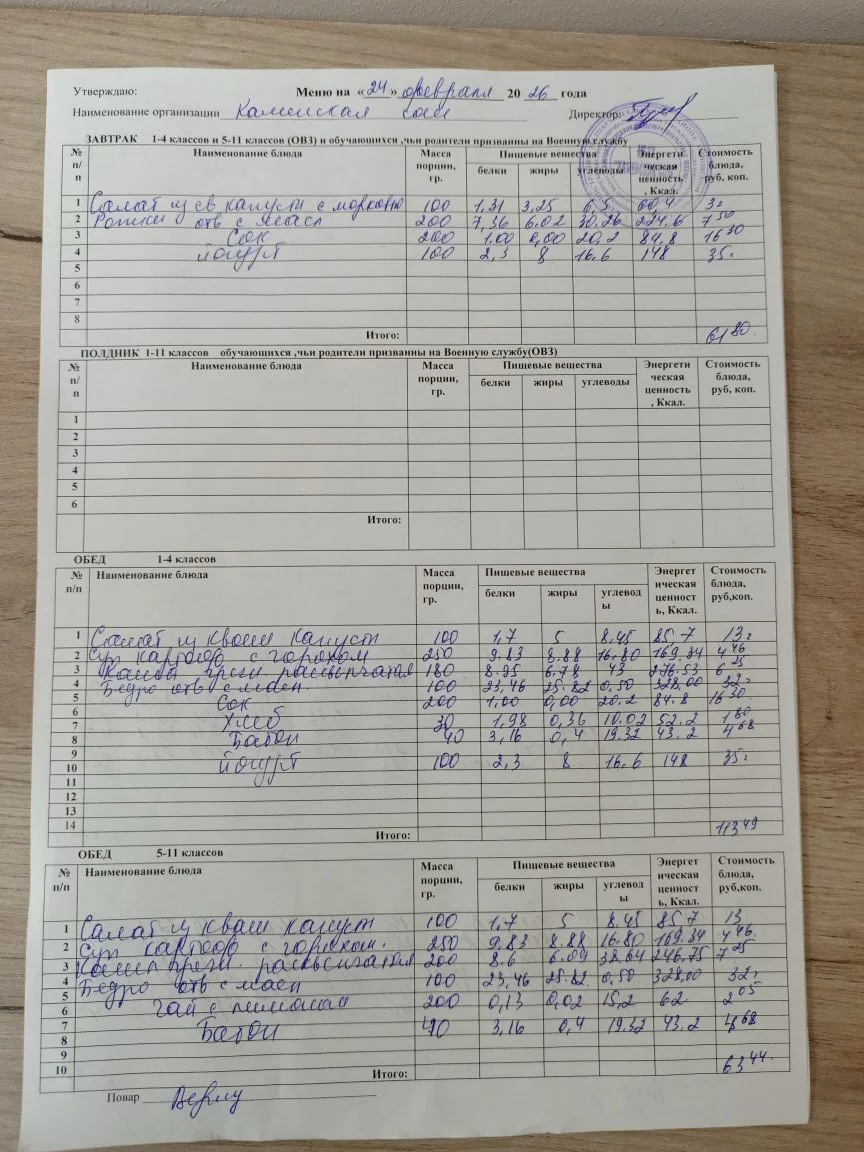 Утверждаю: Меню на «24» февраля 20 26 года
Наименование организации Каменская сош Директор:
ЗАВТРАК 1-4 классов и 5-11 классов (ОВЗ) и обучающихся ,чьи родители призванны на Военную службу
№ п/п Наименование блюда Масса порции, гр. Пищевые вещества Энергети ческая ценность , Ккал. Стоимость блюда, руб, коп.
белки жиры углеводы
1 Салат из св капусты с морковью 100 1,31 3,25 6,5 60,4 3=
2 Рожки отв с масл 200 7,36 6.02 30.26 224.6 7 50
3 Сок 200 1.00 0,00 20,2 84,8 16 30
4 йогурт 100 2,3 8 16.6 148 35.
5
6
7
8
Итого: 61 80.
ПОЛДНИК 1-11 классов обучающихся ,чьи родители призванны на Военную службу(ОВЗ)
№ п/п Наименование блюда Масса порции, гр. Пищевые вещества Энергети ческая ценность , Ккал. Стоимость блюда, руб, коп.
белки жиры углеводы
1
2
3
4
5
6
Итого:
ОБЕД 1-4 классов
№ п/п Наименование блюда Масса порции, гр. Пищевые вещества Энергет ическая ценност ь, Ккал. Стоимость блюда, руб,коп.
белки жиры углевод ы
1 Салат из кваш капусты 100 1,7 5 8,45 85.7 13=
2 Суп картоф с горохом 250 9.83 8.88 16.80 169.34 4 46
3 Каша гречн рассыпчатая 180 8.95 6.78 43 276.53 6 25
4 Бедро отв с масл. 100 23,46 25.82 0,50 328,00 32=
5 Сок 200 1,00 0,00 20.2 84.8 16 30
6
7 Хлеб 30 1,98 0,36 10.02 52.2 1 80
8 Батон 40 3,16 0,4 19.32 43.2 4 68
9
10 йогурт 100 2,3 8 16,6 148 35=
11
12
13
14
Итого: 113 49
ОБЕД 5-11 классов
№ п/п Наименование блюда Масса порции, гр. Пищевые вещества Энергет ическая ценност ь, Ккал. Стоимость блюда, руб,коп.
белки жиры углевод ы
1 Салат из кваш капусты 100 1,7 5 8.45 85.7 13
2 Суп картоф с горохом. 250 9,83 8.88 16.80 169.34 4 46.
3 Каша гречн. рассыпчатая 200 8.6 6.09 38.64 246.75 7 25
4 Бедро отв с масл 100 23,46 25.82. 0,50 328,00 32=
5
6 Чай с лимоном 200 0,13 0,02 15,2 62 2 05
7 Батон 40 3,16 0,4 19.32 43.2 4 68
8
9
10
Итого: 63 44.
Повар